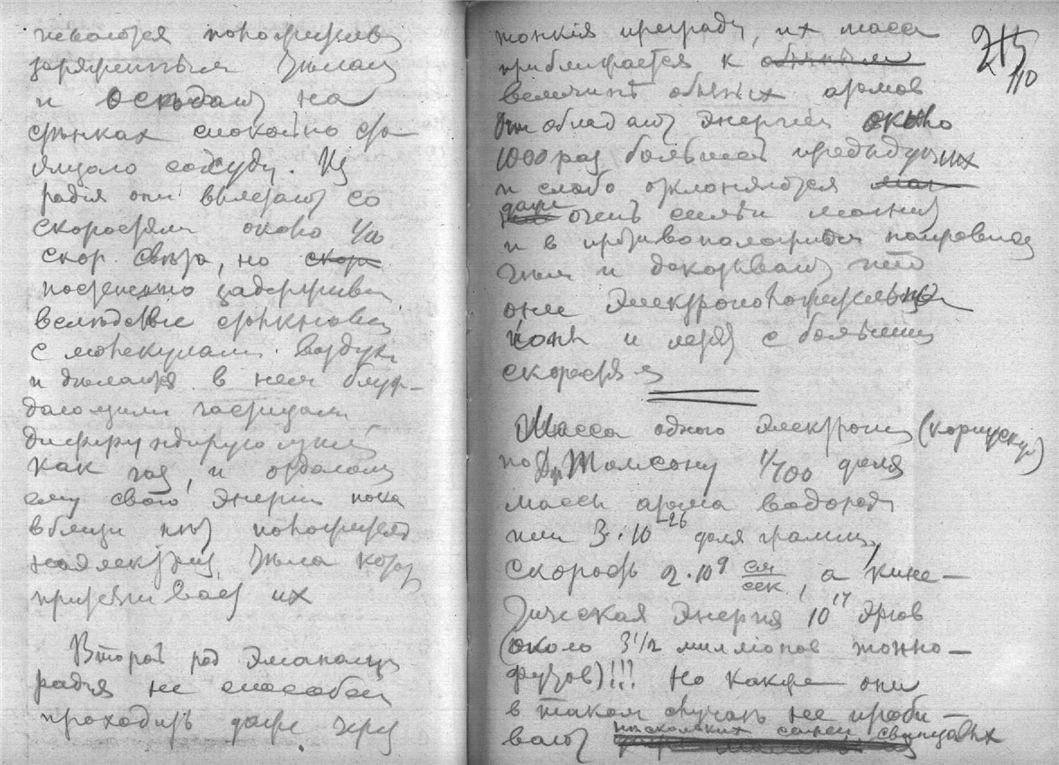 гиваются положительно
заряженным тѣлам
и осѣдают на
стѣнках спокойно сто
ящаго сосуда. Из
радія они вылетают со
скоростями около 1/10
скор. свѣта, но скоро
постепенно задержив
вслѣдствіе столкновен
с молекулами воздуха
и дѣлаются в нем блуж-
дающими частицами
диффундирующими
как газ, и отдающ
ему свою энергію пока
вблизи нѣт положител
наэлектриз. тѣла котор
притягивает их
Второй род эманаціи
радія не способен
проходить даже через
215
110
тонкія преграды, их масса
приближается к обычным
величинѣ обычных атомов
Они обладают энергіей около
1000 раз большей предыдущих
и слабо отклоняются
даже очень сильн магнит
и в противоположном направлен
тѣм и доказывают что
они электроположительные
іоны и летят с большим
скоростям
Масса одного электрона (корпускул)
по Дж. Томсону 1/700 доля
массы атома водорода
или 3·10⁻²⁶ доля грамма,
скорость 2·10⁹ см/сек, а кине–
тическая энергія 10¹⁷ эргов
(около 3½ милліонов тонно–
футов)!!! Но как же они
в таком случаѣ не проби–
вают нѣскольких сажен свинцовых